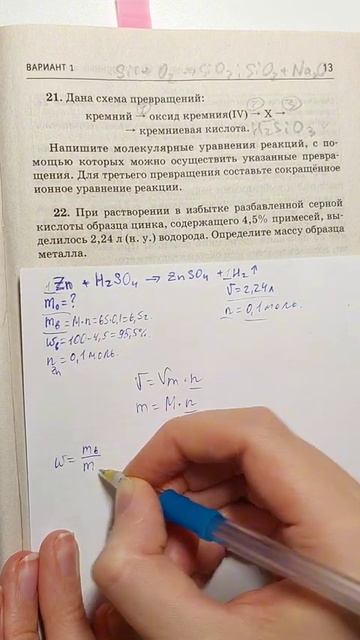 ВАРИАНТ 1
13
SiO₂ + Na₂O
21. Дана схема превращений:
кремний → оксид кремния(IV) → X →
→ кремниевая кислота. H₂SiO₃
Напишите молекулярные уравнения реакций, с по-
мощью которых можно осуществить указанные превра-
щения. Для третьего превращения составьте сокращённое
ионное уравнение реакции.
22. При растворении в избытке разбавленной серной
кислоты образца цинка, содержащего 4,5% примесей, вы-
делилось 2,24 л (н. у.) водорода. Определите массу образца
металла.
1Zn + H₂SO₄ → ZnSO₄ + 1H₂↑
m₀ = ?
V = 2,24л
mв = M·n = 65·0,1 = 6,5г
n = 0,1 моль
wв = 100 - 4,5 = 95,5%
n = 0,1 моль
Zn
V = Vm · n
m = M · n
w = mв
m